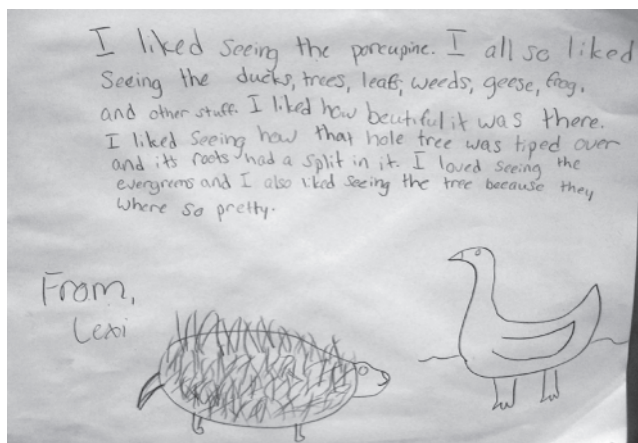 I liked seeing the porcupine. I all so liked
Seeing the ducks, trees, leafs, weeds, geese, frog,
and other stuff. I liked how beutiful it was there.
I liked seeing how that hole tree was tiped over
and its roots had a split in it. I loved seeing the
evergrems and I also liked seeing the tree because they
where so pretty.
From,
Lexi